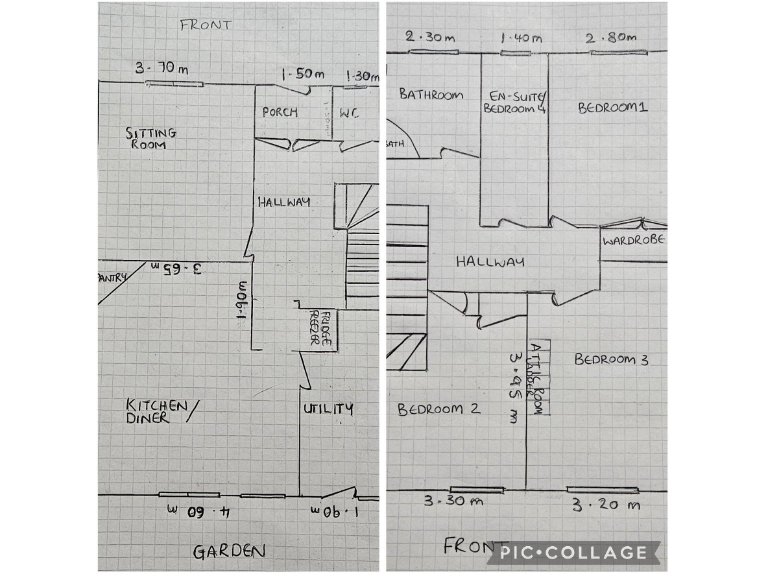 FRONT
3.70m
1.50m
1.30m
PORCH
WC
SITTING
ROOM
HALLWAY
3.65 m
ANTRY
1.90m
FRIDGE
FREEZER
KITCHEN/
DINER
UTILITY
4.60 m
1.90m
GARDEN
2.30m
1.40m
2.80m
BATHROOM
EN-SUITE/
BEDROOM 4
BEDROOM1
ATH
WARDROBE
HALLWAY
ATTIC ROOM
LADDER
3.95 m
BEDROOM 3
BEDROOM 2
3.30m
3.20m
FRONT
PIC•COLLAGE